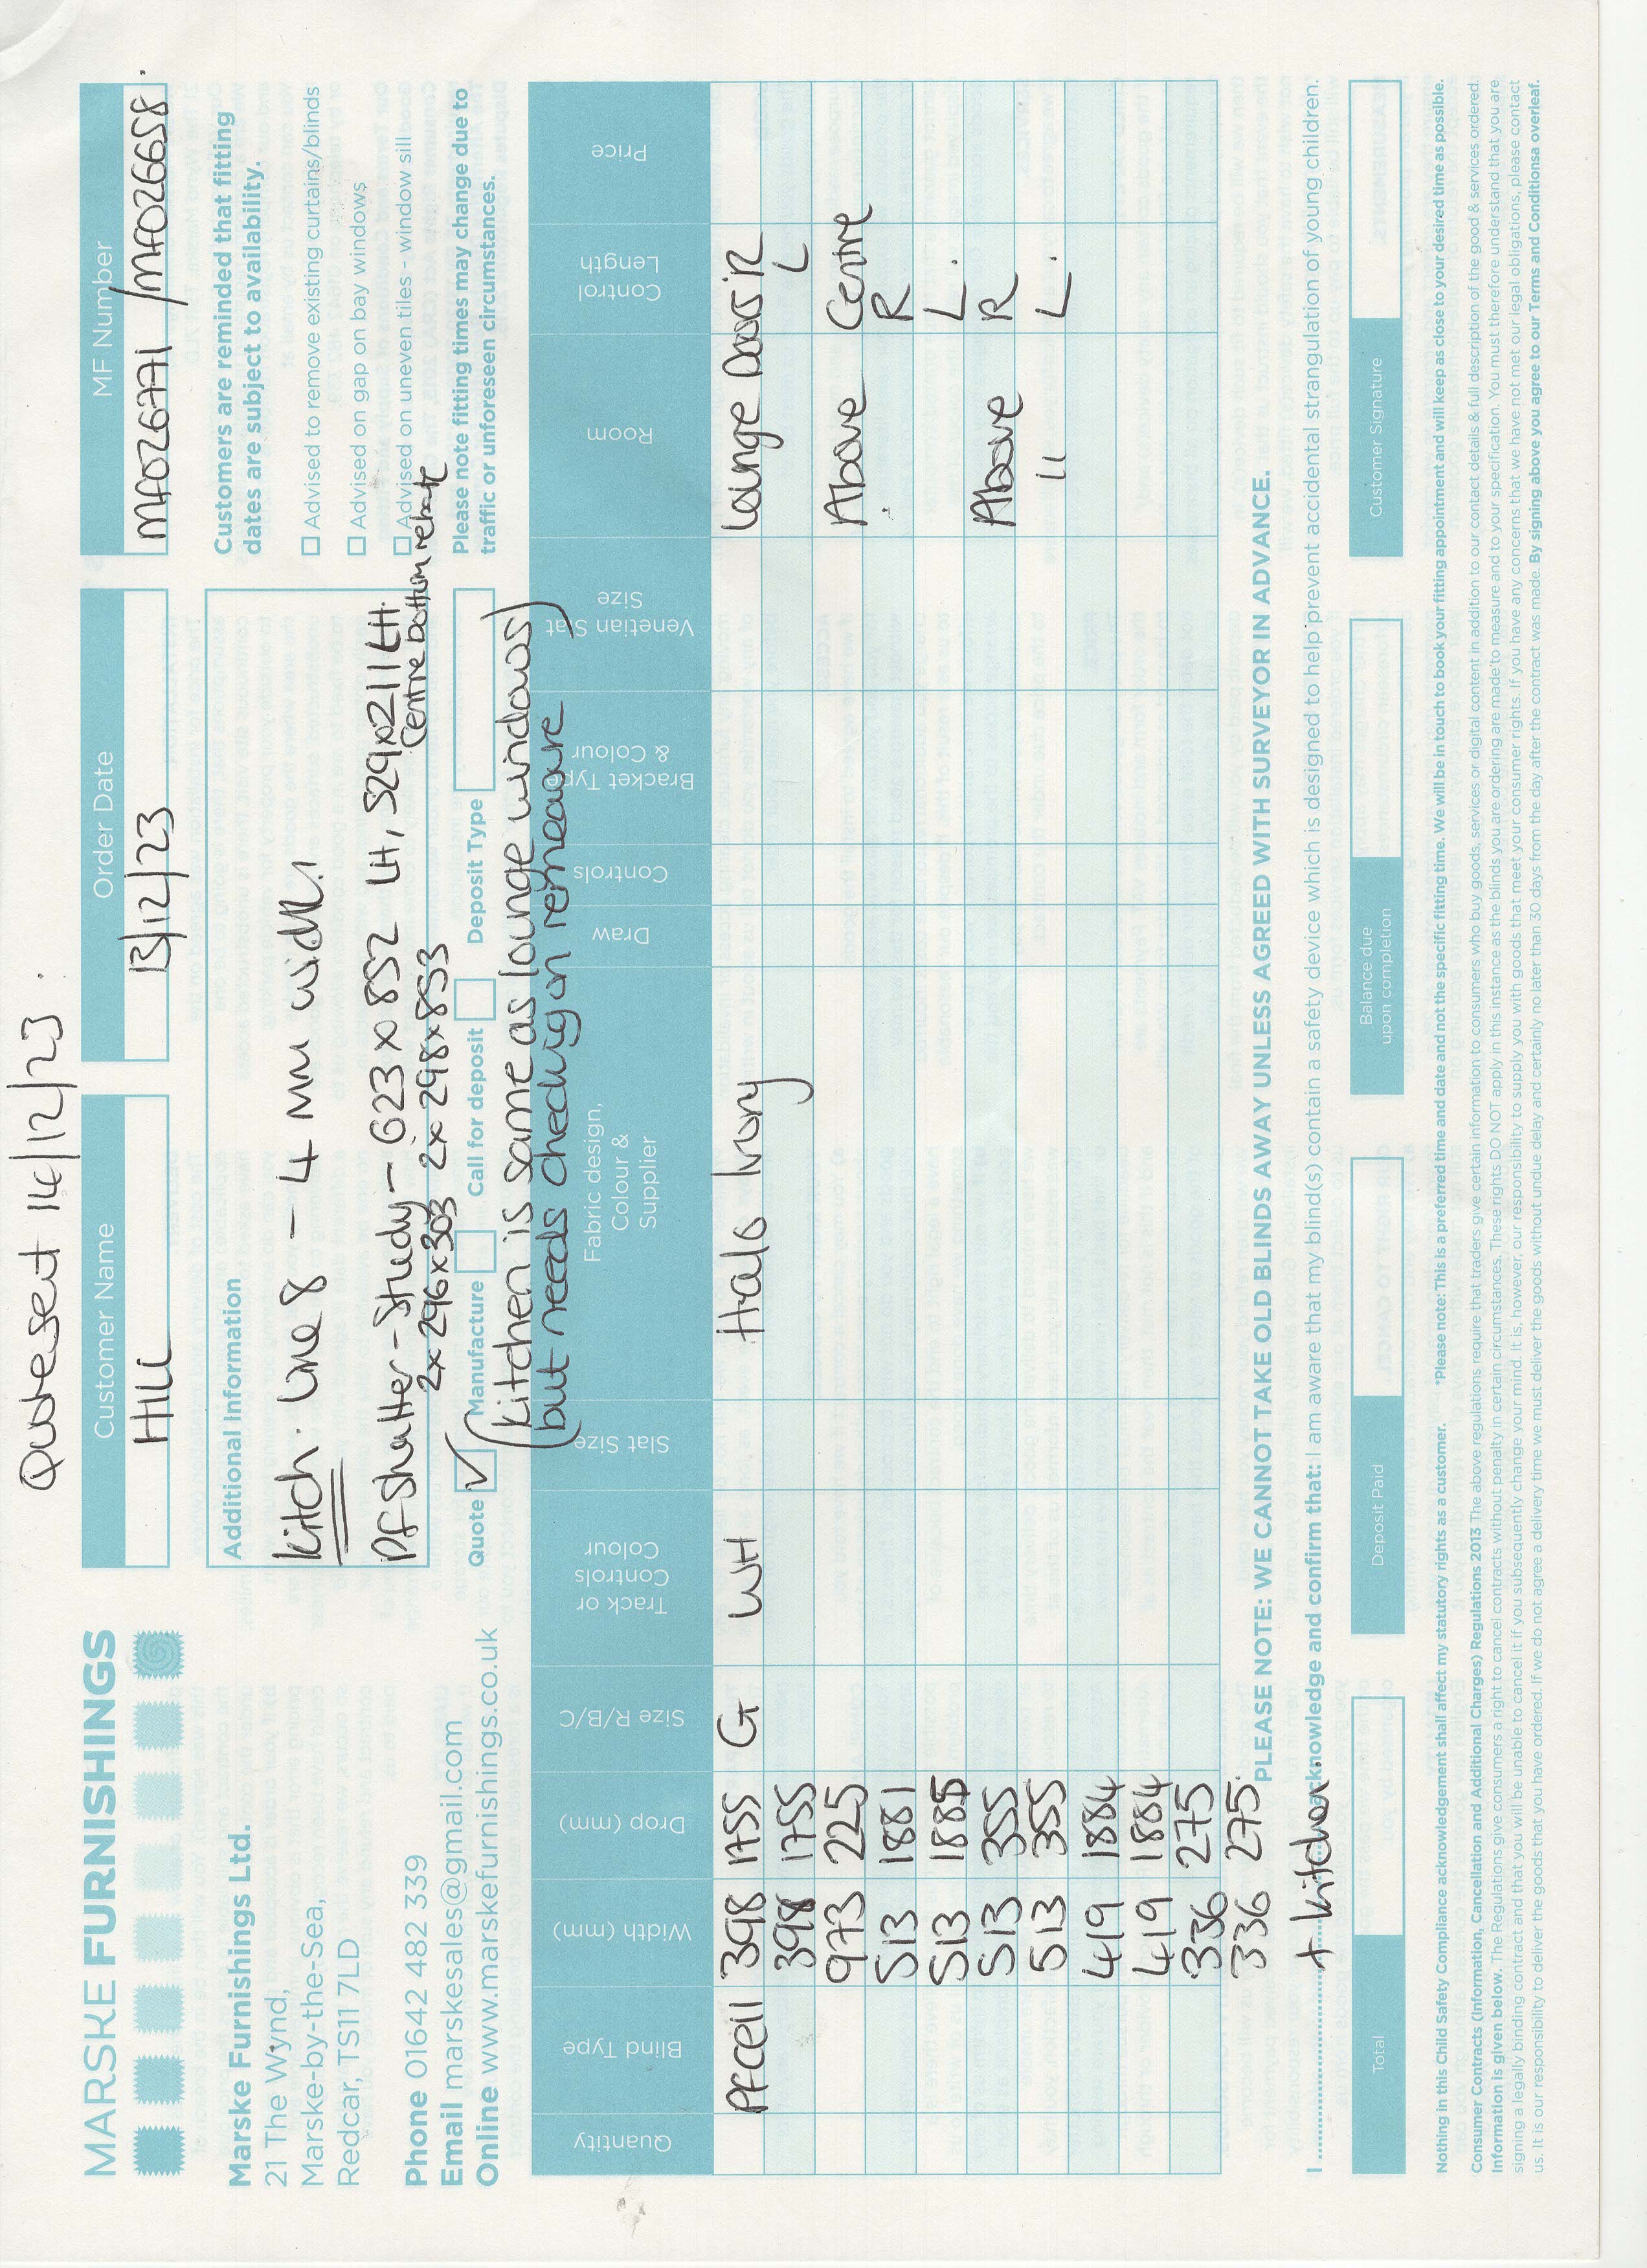 Quote sent 14/12/23.
MARSKE FURNISHINGS
Marske Furnishings Ltd.
21 The Wynd,
Marske-by-the-Sea,
Redcar, TS11 7LD
Phone 01642 482 339
Email marskesales@gmail.com
Online www.marskefurnishings.co.uk
Customer Name
HILL
Order Date
13/12/23
MF Number
MF026771 / MF026658.
Additional Information
Kitch: Line 8 - 4 mm width!
PF Shutter - Study - 623 x 852 LH, 529x211 LH.
2x 296x303 2x 298x853 Centre bottom rebate
Customers are reminded that fitting
dates are subject to availability.
☐ Advised to remove existing curtains/blinds
☐ Advised on gap on bay windows
☐ Advised on uneven tiles - window sill
Please note fitting times may change due to
traffic or unforeseen circumstances.
Quote ✓ Manufacture Call for deposit Deposit Type
(Kitchen is same as lounge windows)
but needs checking on remeasure
Quantity Blind Type Width (mm) Drop (mm) Size R/B/C Track or Controls Colour Slat Size Fabric design, Colour & Supplier Draw Controls Bracket Type & Colour Venetian Slat Size Room Control Length Price
PF cell 398 1755 G WH Halo Ivory Lounge Doors R
398 1755 L
973 225 Above Centre
513 1881 R
513 1885 L.
513 355 Above R
513 355 11 L.
419 1884
419 1884
336 275
336 275.
PLEASE NOTE: WE CANNOT TAKE OLD BLINDS AWAY UNLESS AGREED WITH SURVEYOR IN ADVANCE.
+ kitchen.
I acknowledge and confirm that: I am aware that my blind(s) contain a safety device which is designed to help prevent accidental strangulation of young children.
Total Deposit Paid Balance due upon completion Customer Signature
Nothing in this Child Safety Compliance acknowledgement shall affect my statutory rights as a customer. *Please note: This is a preferred time and date and not the specific fitting time. We will be in touch to book your fitting appointment and will keep as close to your desired time as possible.
Consumer Contracts (Information, Cancellation and Additional Charges) Regulations 2013 The above regulations require that traders give certain information to consumers who buy goods, services or digital content in addition to our contact details & full description of the good & services ordered.
Information is given below. The Regulations give consumers a right to cancel contracts without penalty in certain circumstances. These rights DO NOT apply in this instance as the blinds you are ordering are made to measure and to your specification. You must therefore understand that you are
signing a legally binding contract and that you will be unable to cancel it if you subsequently change your mind. It is, however, our responsibility to supply you with goods that meet your consumer rights. If you have any concerns that we have not met our legal obligations, please contact
us. It is our responsibility to deliver the goods without undue delay and certainly no later than 30 days from the day after the contract was made. If we do not agree a delivery time we must deliver the goods that you have ordered. By signing above you agree to our Terms and Conditionsa overleaf.